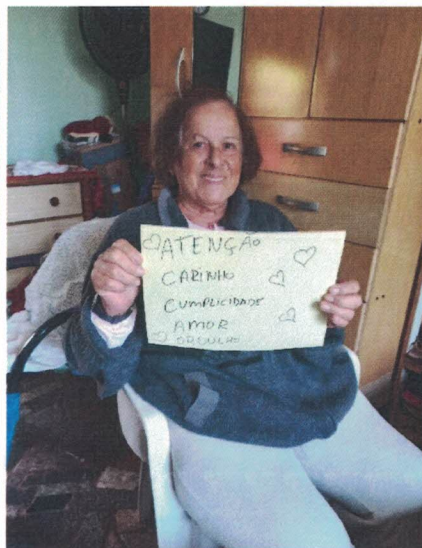 ATENÇÃO
CARINHO
CUMPLICIDADE
AMOR
ORGULHO